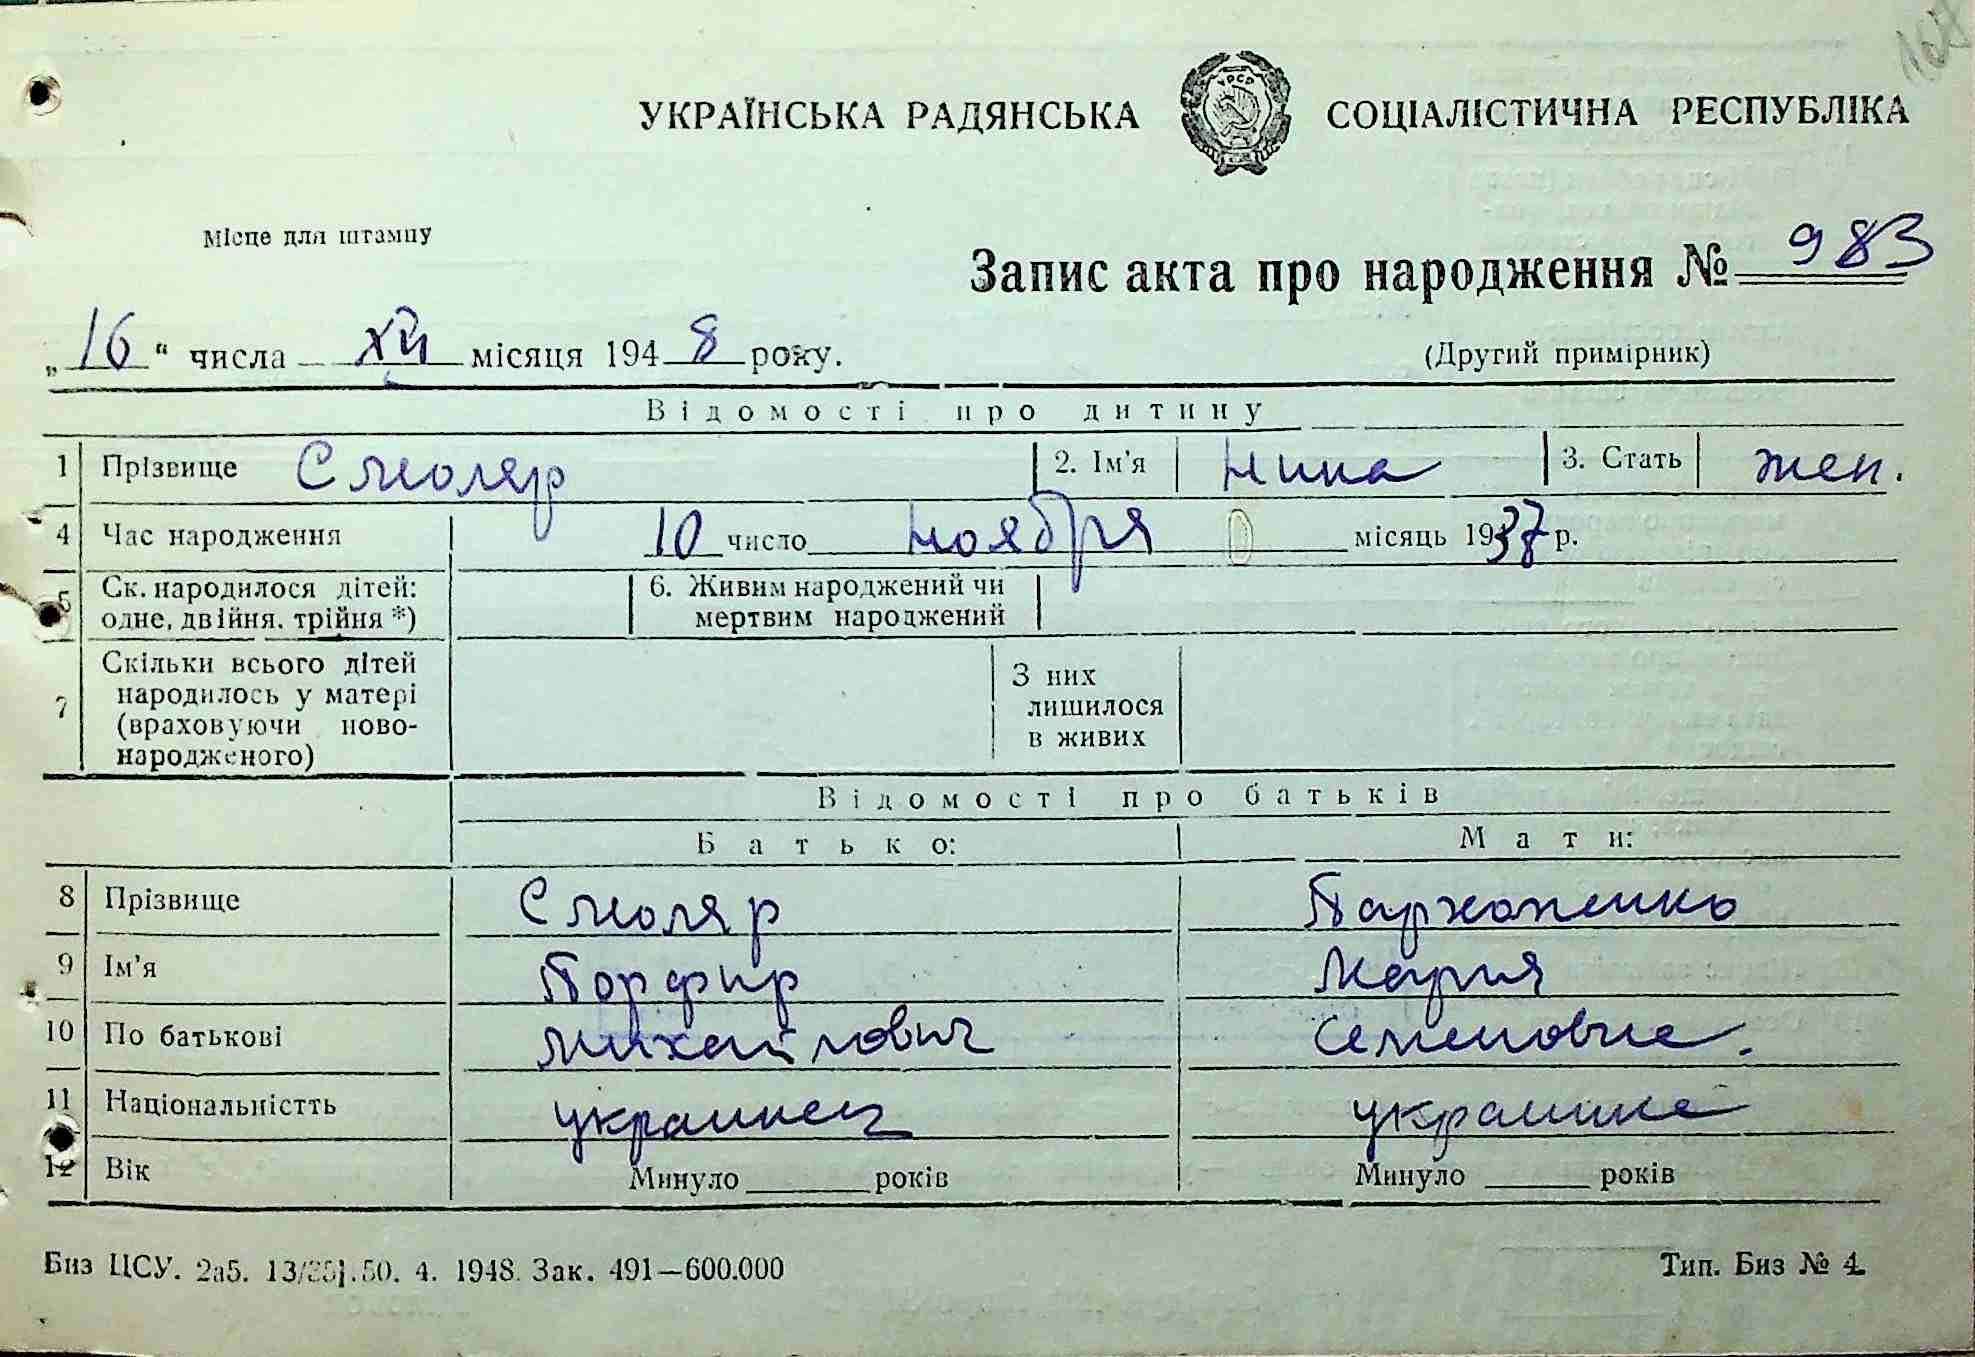 УКРАЇНСЬКА РАДЯНСЬКА СОЦІАЛІСТИЧНА РЕСПУБЛІКА
УРСР
Місце для штампу
Запис акта про народження № 983
„16“ числа XII місяця 1948 року.
(Другий примірник)
Відомості про дитину
1 Прізвище Смоляр 2. Ім'я Нина 3. Стать жен.
4 Час народження 10 число ноября місяць 1937 р.
5 Ск. народилося дітей: одне, двійня, трійня *) 6. Живим народжений чи мертвим народжений
7 Скільки всього дітей народилось у матері (враховуючи ново-народженого) З них лишилося в живих
Відомості про батьків
Батько: Мати:
8 Прізвище Смоляр Пархоменко
9 Ім'я Порфир Мария
10 По батькові Михайлович Семеновна.
11 Національністть украинец украинка
12 Вік Минуло років Минуло років
Биз ЦСУ. 2а5. 50. 4. 1948. Зак. 491—600.000 Тип. Биз № 4.